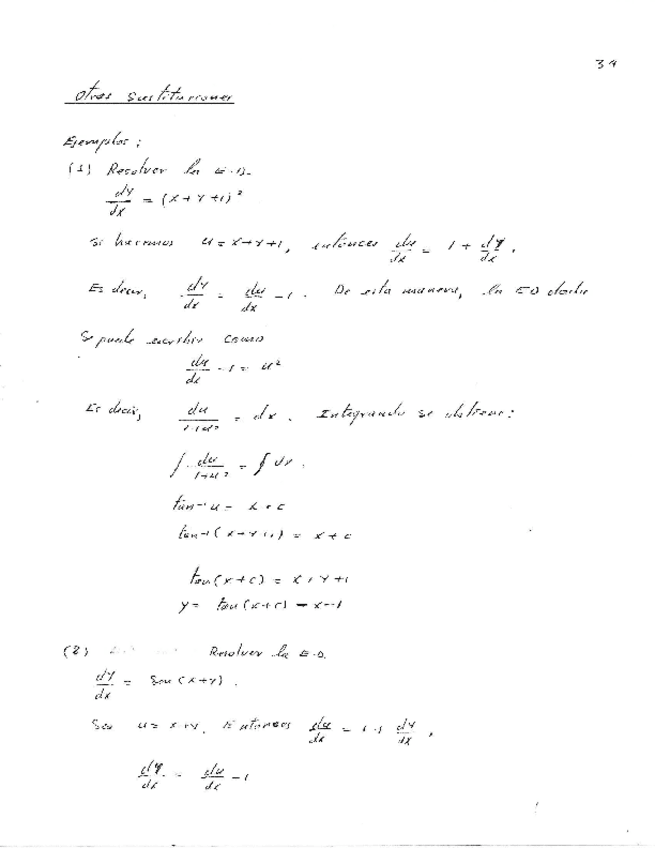 34
Otras sustituciones
Ejemplos:
(1) Resolver la E.D.
dy/dx = (x+y+1)²
si hacemos u = x+y+1, entonces du/dx = 1 + dy/dx.
Es decir, dy/dx = du/dx - 1. De esta manera, la ED dada
se puede escribir como
du/dx - 1 = u²
Es decir, du/1+u² = dx. Integrando se obtiene:
∫ du/1+u² = ∫ dx.
tan⁻¹ u = x + c
tan⁻¹(x+y+1) = x + c
tan(x+c) = x+y+1
y = tan(x+c) - x - 1
(2) Resolver la E.D.
dy/dx = Sen(x+y).
Sea u = x+y. Entonces du/dx = 1 + dy/dx,
dy/dx = du/dx - 1